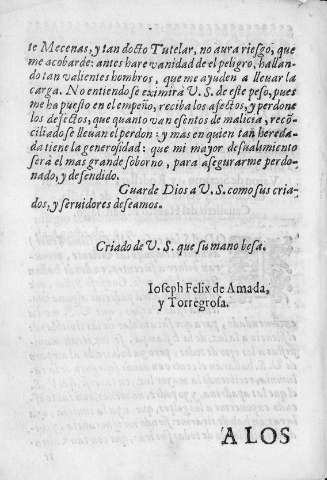 te Mecenas, y tan docto Tutelar, no aura riesgo, que
me acobarde: antes hare vanidad de el peligro, hallan-
do tan valientes hombros, que me ayuden a lleuar la
carga. No entiendo se eximirà V. S. de este peso, pues
me ha puesto en el empeño, reciba los afectos, y perdone
los defectos, que quanto van esentos de malicia, recõ-
ciliado se lleuan el perdon: y mas en quien tan hereda-
da tiene la generosidad: que mi mayor desualimiento
serà el mas grande soborno, para asegurarme perdo-
nado, y defendido.
Guarde Dios a V. S. como sus cria-
dos, y seruidores deseamos.
Criado de V. S. que su mano besa.
Ioseph Felix de Amada,
y Torregrosa.
A LOS